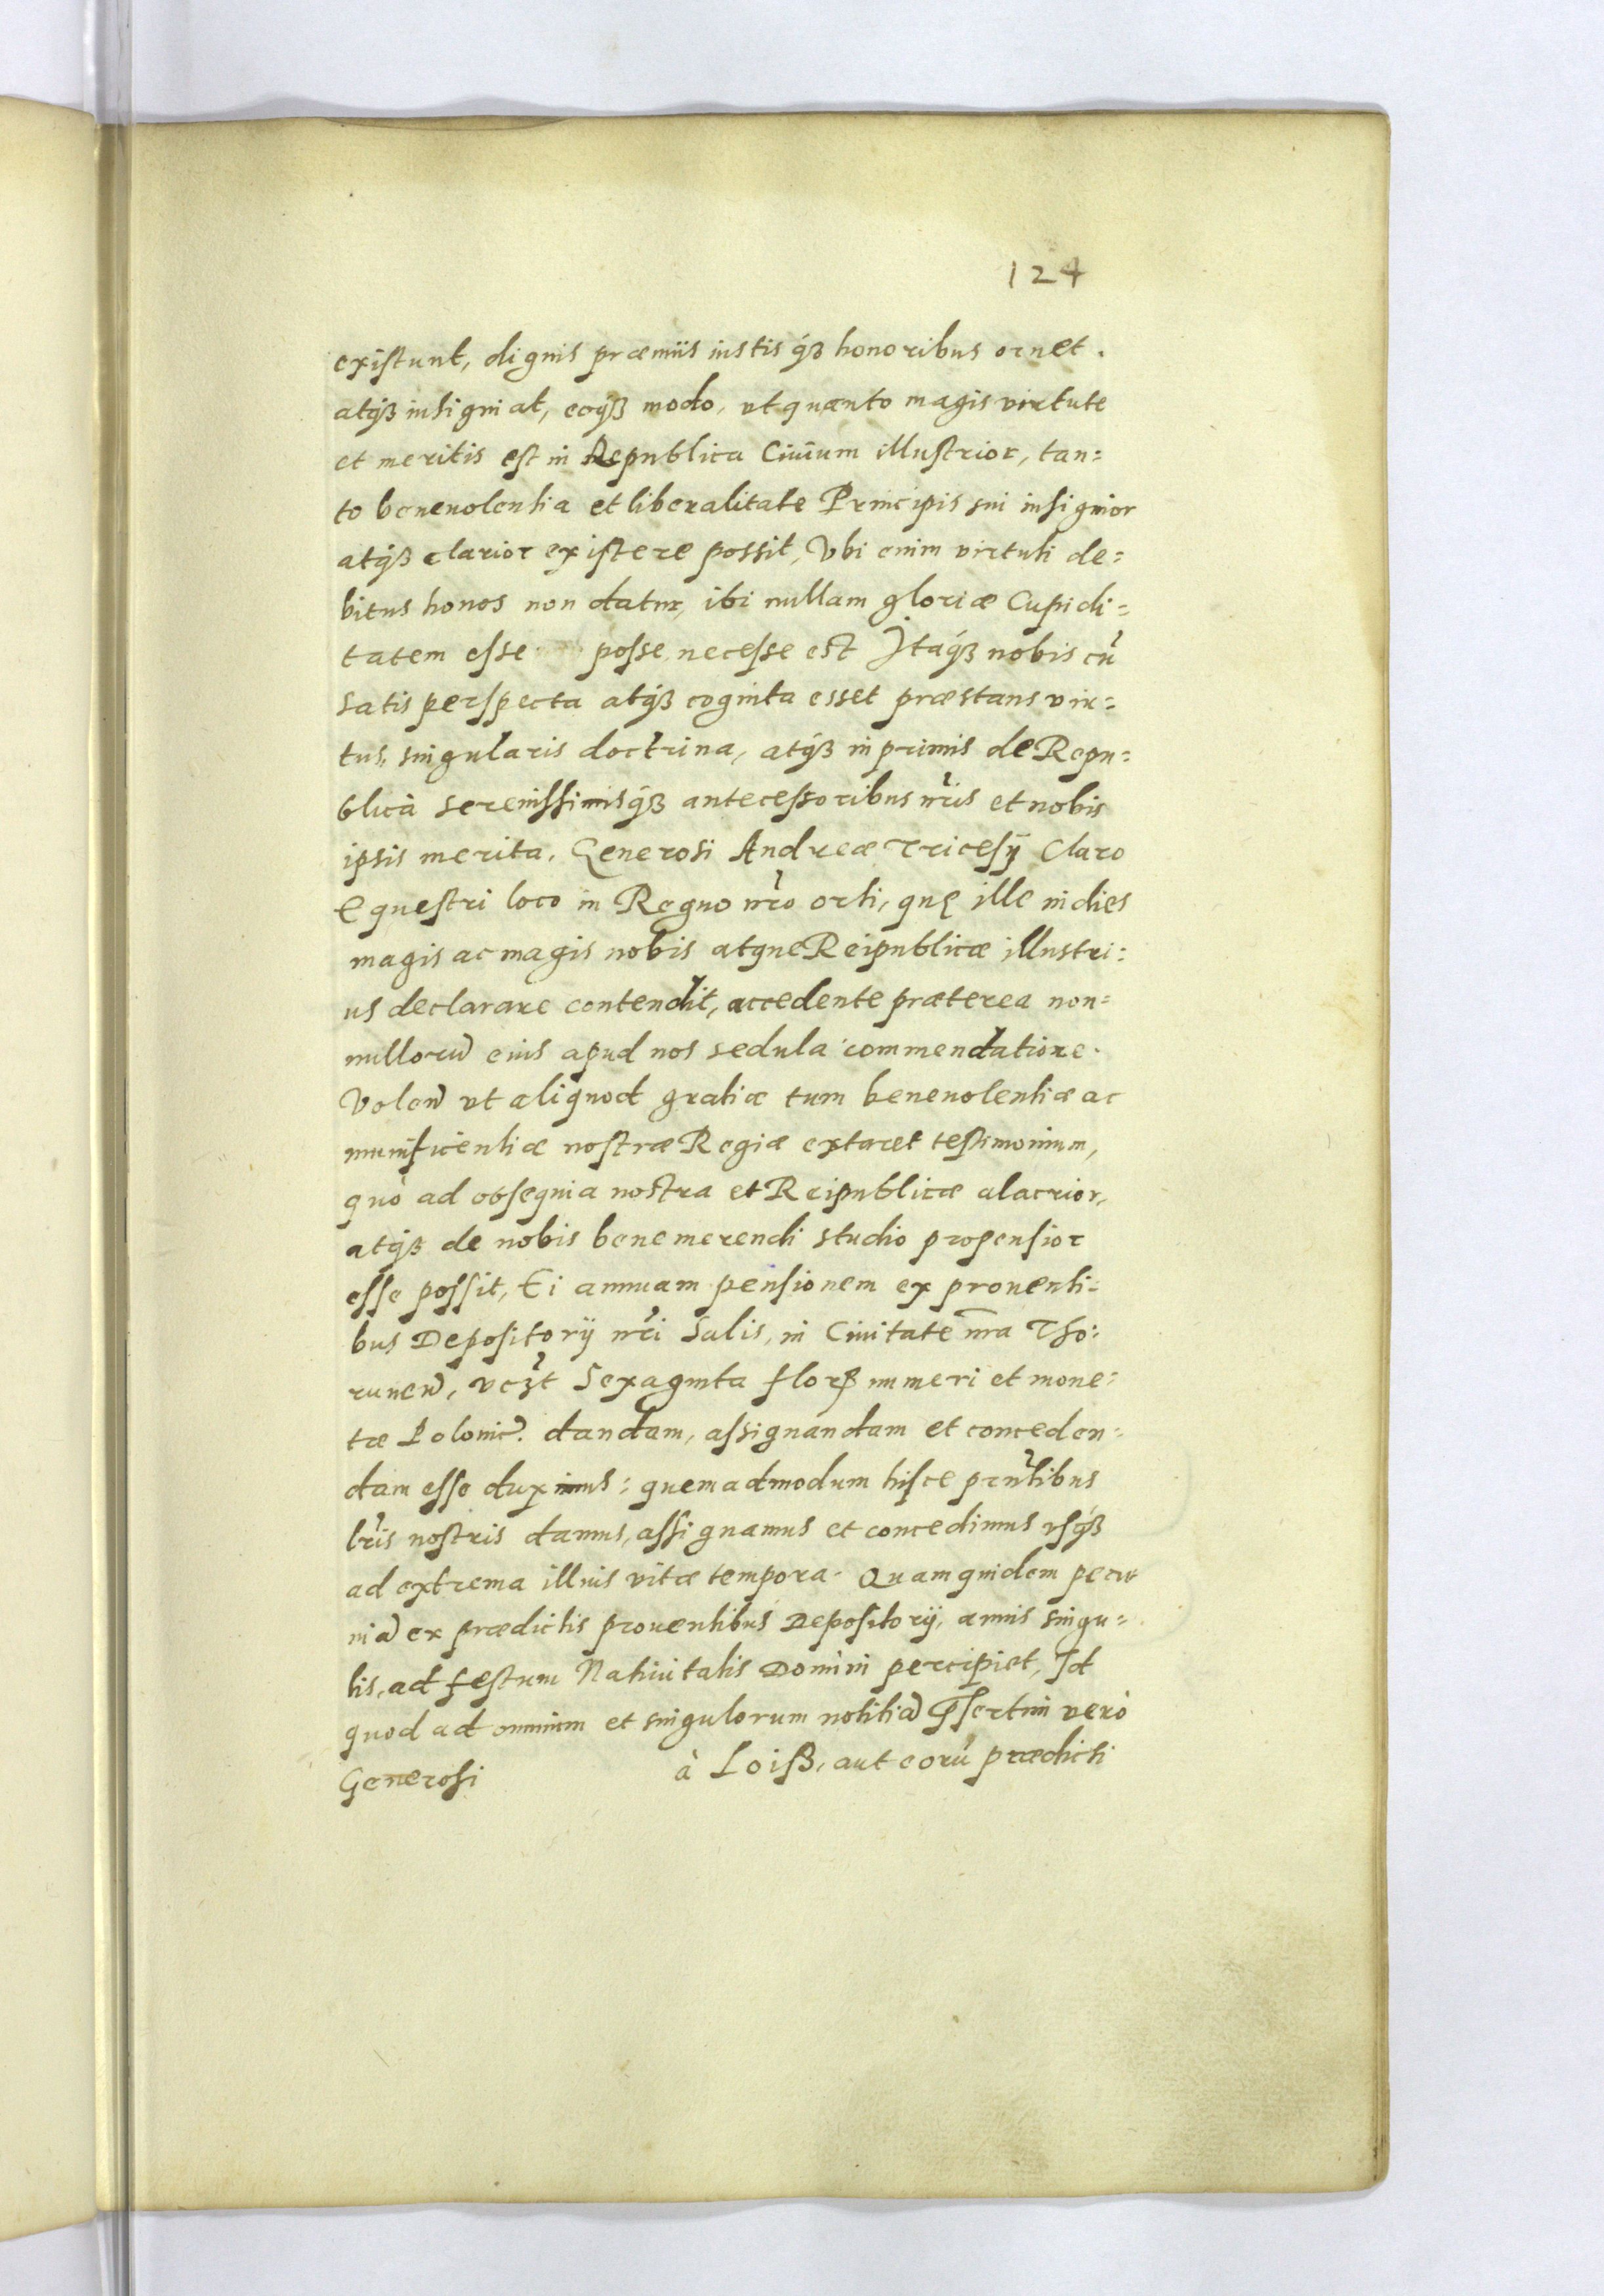 124
existunt, dignis præmiis iustisq́ꝫ honoribus ornet.
atq́ꝫ insigniat, eoq́ꝫ modo, ut quanto magis virtute
et meritis est in Republica Ciuium illustrior, tan=
to beneuolentia et liberalitate Principis sui insignior
atq́ꝫ clarior existere possit, Vbi enim virtuti de=
bitus honos non datur, ibi nullam gloriæ Cupidi=
tatem esse posse necesse est Itaq́ꝫ nobis cũ
satis perspecta atq́ꝫ cognita esset præstans vir=
tus, singularis doctrina, atq́ꝫ in primis de Repu=
blicà serenissimisq́ꝫ antecessoribus nr̃is et nobis
ipsis merita, Generosi Andreæ Tricesij Claro
Equestri loco in Regno nr̃o orti, quę ille in dies
magis ac magis nobis atque Reipublicæ illustri=
us declarare contendit, accedente præterea non=
nullorũ eius apud nos sedula commendatione.
Volen̄ ut aliquod gratiæ tum beneuolentiæ ac
munificentiæ nostræ Regiæ extaret testimonium,
quò ad obsequia nostra et Reipublicæ alacrior,
atq́ꝫ de nobis bene merendi studio propensior
esse possit, Ei annuam pensionem ex prouenti=
bus Depositorij nr̃i Salis, in Ciuitate nr̃a Tho=
runen̄, vcꝫt Sexaginta florꝫ numeri et mone=
tæ Polonic̄. dandam, assignandam et conceden=
dam esse duximus: quemadmodum hisce prñtibus
lr̃is nostris damus, assignamus et concedimus usq́ꝫ
ad extrema illius vitæ tempora. Quam quidem pecu
niã ex prædictis prouentibus Depositorij, annis singu=
lis, ad festum Natiuitatis Domini percipiet, Id
quod ad omnium et singulorum notitiã Psertim verò
Generosi à Loiß, aut eorũ prædicti